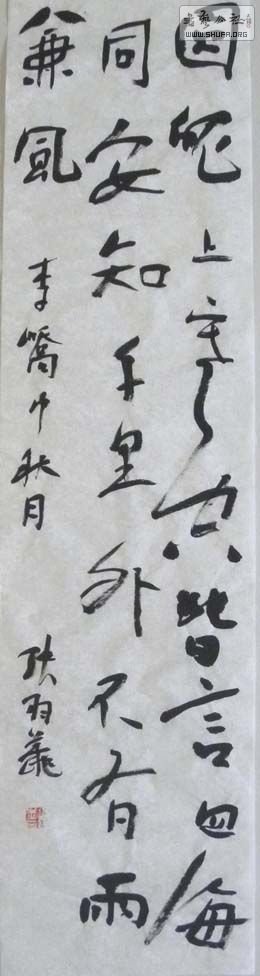 圓魄上寒空皆言四海
同安知千里外不有雨
兼風
李嶠中秋月
張羽
WWW.SHUFA.ORG